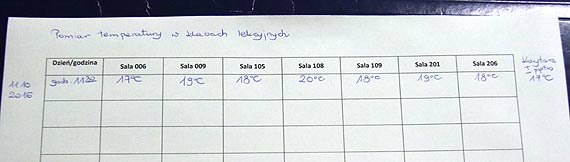 Pomiar temperatury w klasach lekcyjnych
Dzień/godzina Sala 006 Sala 009 Sala 105 Sala 108 Sala 109 Sala 201 Sala 206 Korytarz
I piętro
11 10 godz. 11:30 17°C 19°C 18°C 20°C 18°C 19°C 18°C 17°C
2016